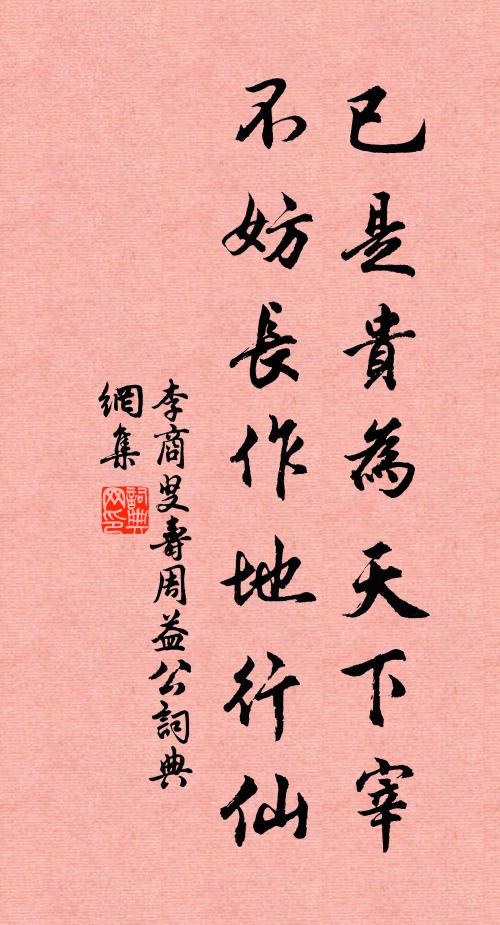 已是貴為天下宰
不妨長作地行仙
李商叟壽周益公詞典
網集
詞典
网印